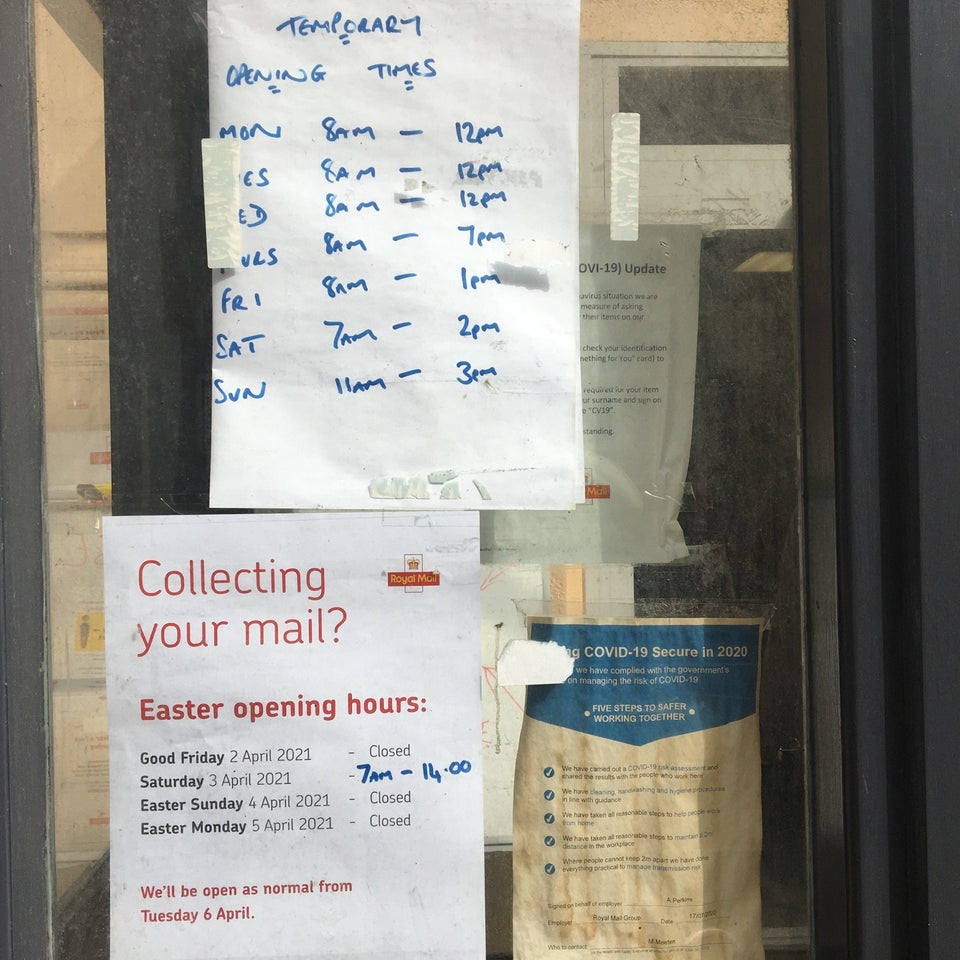 TEMPORARY
OPENING TIMES
MON 8AM - 12PM
ES 8AM - 12PM
ED 8AM - 12PM
URS 8AM - 7PM
FRI 8AM - 1PM
SAT 7AM - 2PM
SUN 11AM - 3PM
OVI-19) Update
avirus situation we are
measure of asking
their items on our
check your identification
mething for You" card) to
required for your item
ur surname and sign on
e "CV19".
standing.
Mail
Collecting
your mail?
Royal Mail
Easter opening hours:
Good Friday 2 April 2021 - Closed
Saturday 3 April 2021 - 7AM - 14.00
Easter Sunday 4 April 2021 - Closed
Easter Monday 5 April 2021 - Closed
We'll be open as normal from
Tuesday 6 April.
ng COVID-19 Secure in 2020
we have complied with the government's
on managing the risk of COVID-19
FIVE STEPS TO SAFER
WORKING TOGETHER
We have carried out a COVID-19 risk assessment and
shared the results with the people who work here
We have cleaning, handwashing and hygiene procedures
in line with guidance
We have taken all reasonable steps to help people work
from home
We have taken all reasonable steps to maintain a 2m
distance in the workplace
Where people cannot keep 2m apart we have done
everything practical to manage transmission risk
Signed on behalf of employer A Perkins
Employer Royal Mail Group Date
Who to contact: